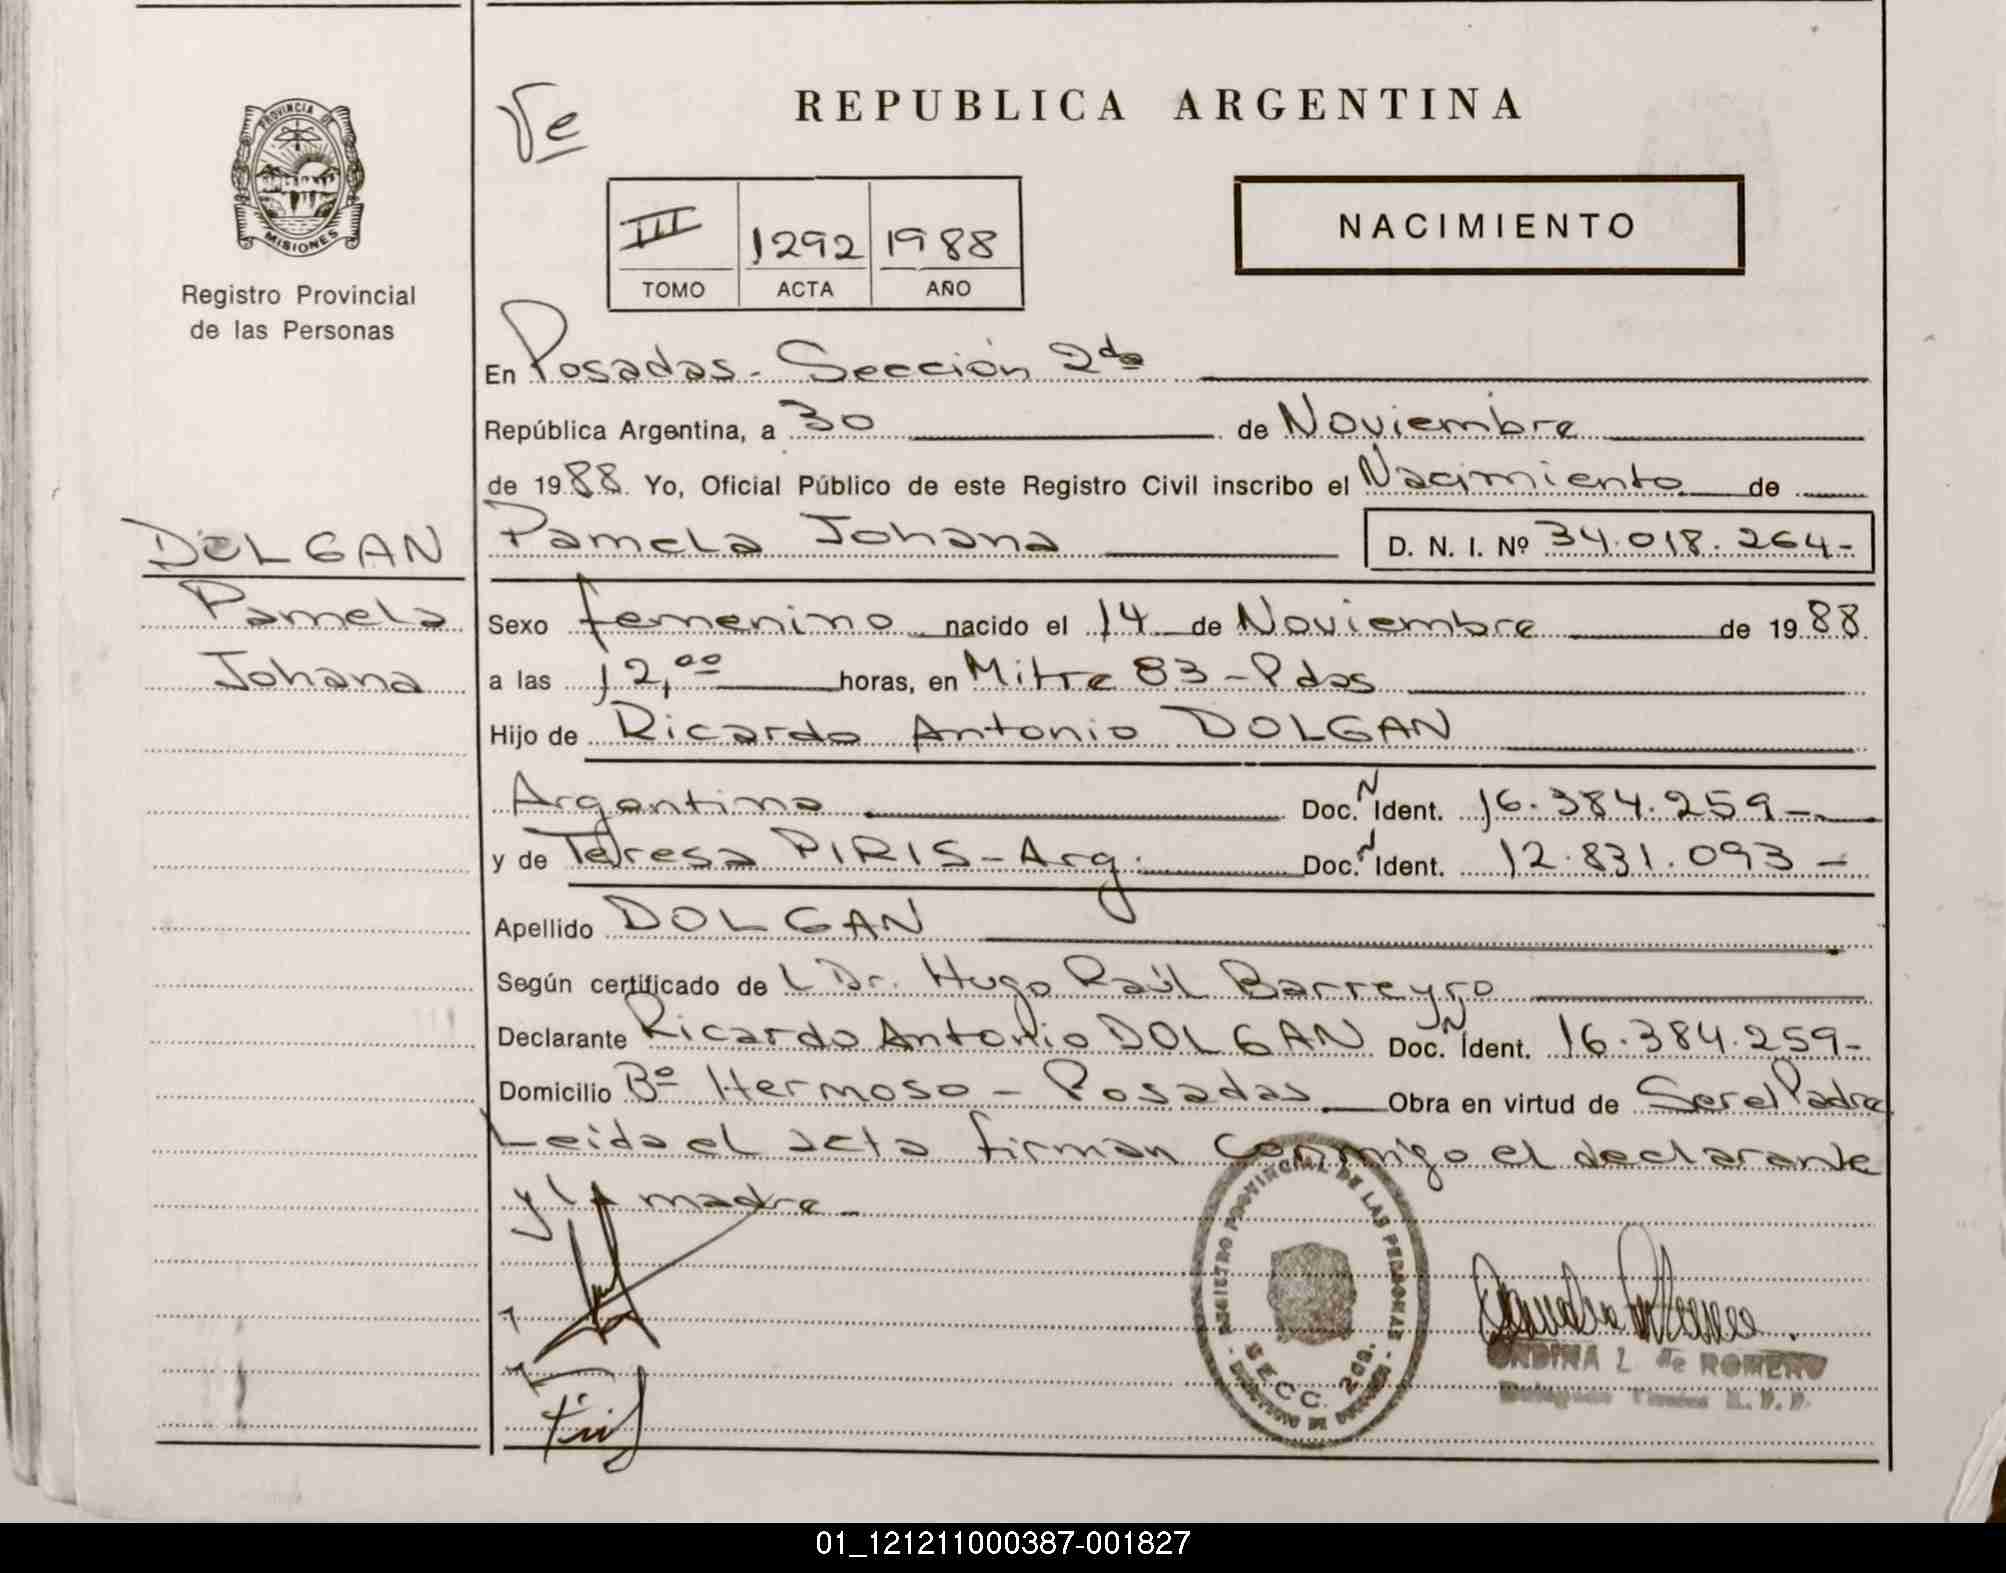 PROVINCIA DE
MISIONES
Registro Provincial
de las Personas
REPUBLICA ARGENTINA
NACIMIENTO
III 1292 1988
TOMO ACTA AÑO
En Posadas - Sección 2da
República Argentina, a 30 de Noviembre
de 1988 Yo, Oficial Público de este Registro Civil inscribo el Nacimiento de
DOLGAN
Pamela Johana D. N. I. Nº 34.018.264-
Pamela
Johana
Sexo femenino nacido el 14 de Noviembre de 1988
a las 12,00 horas, en Mitre 83 - Pdas
Hijo de Ricardo Antonio DOLGAN
Argentino Doc. N Ident. 16.384.259-
y de Teresa PIRIS - Arg. Doc. N Ident. 12.831.093-
Apellido DOLGAN
Según certificado de L Dr. Hugo Raúl Barreyro
Declarante Ricardo Antonio DOLGAN Doc. N Ident. 16.384.259-
Domicilio Bº Hermoso - Posadas Obra en virtud de Ser el Padre
Leida el acta firman conmigo el declarante
y la madre -
REGISTRO PROVINCIAL DE LAS PERSONAS
SECC. 2da.
ONDINA L de ROMERO
01_121211000387-001827